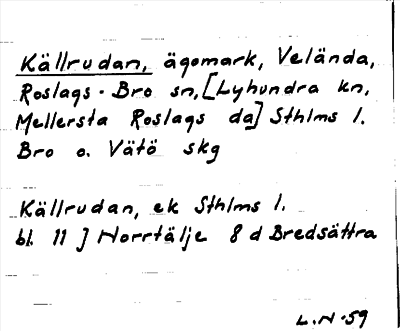 Källrudan, ägomark, Velända,
Roslags-Bro sn, [Lyhundra kn,
Mellersta Roslags da] Sthlms l.
Bro o. Vätö skg
Källrudan, ek Sthlms l.
bl. 11 J Norrtälje 8 d Bredsättra
L.N-59